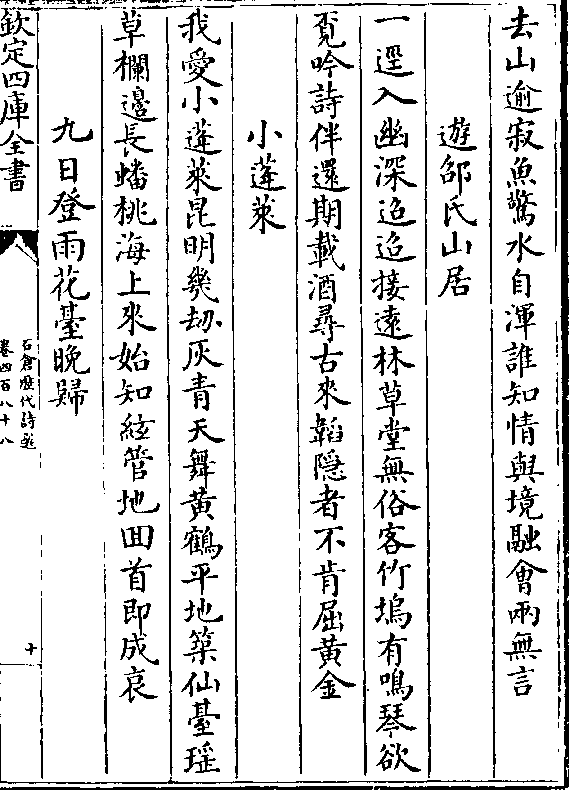 去山逾寂魚驚水自渾誰知情與境融會兩無言
遊邵氏山居
一逕入幽深迢迢接遠林草堂無俗客竹塢有鳴琴欲
覔吟詩伴還期載酒尋古來韜隠者不肯屈黄金
小蓬萊
我愛小蓬萊昆明幾劫灰青天舞黄鶴平地築仙臺瑶
草欄邊長蟠桃海上來始知絃管地囬首即成哀
九日登雨花臺晩歸
欽定四庫全書
石倉歷代詩選
卷四百八十八
十